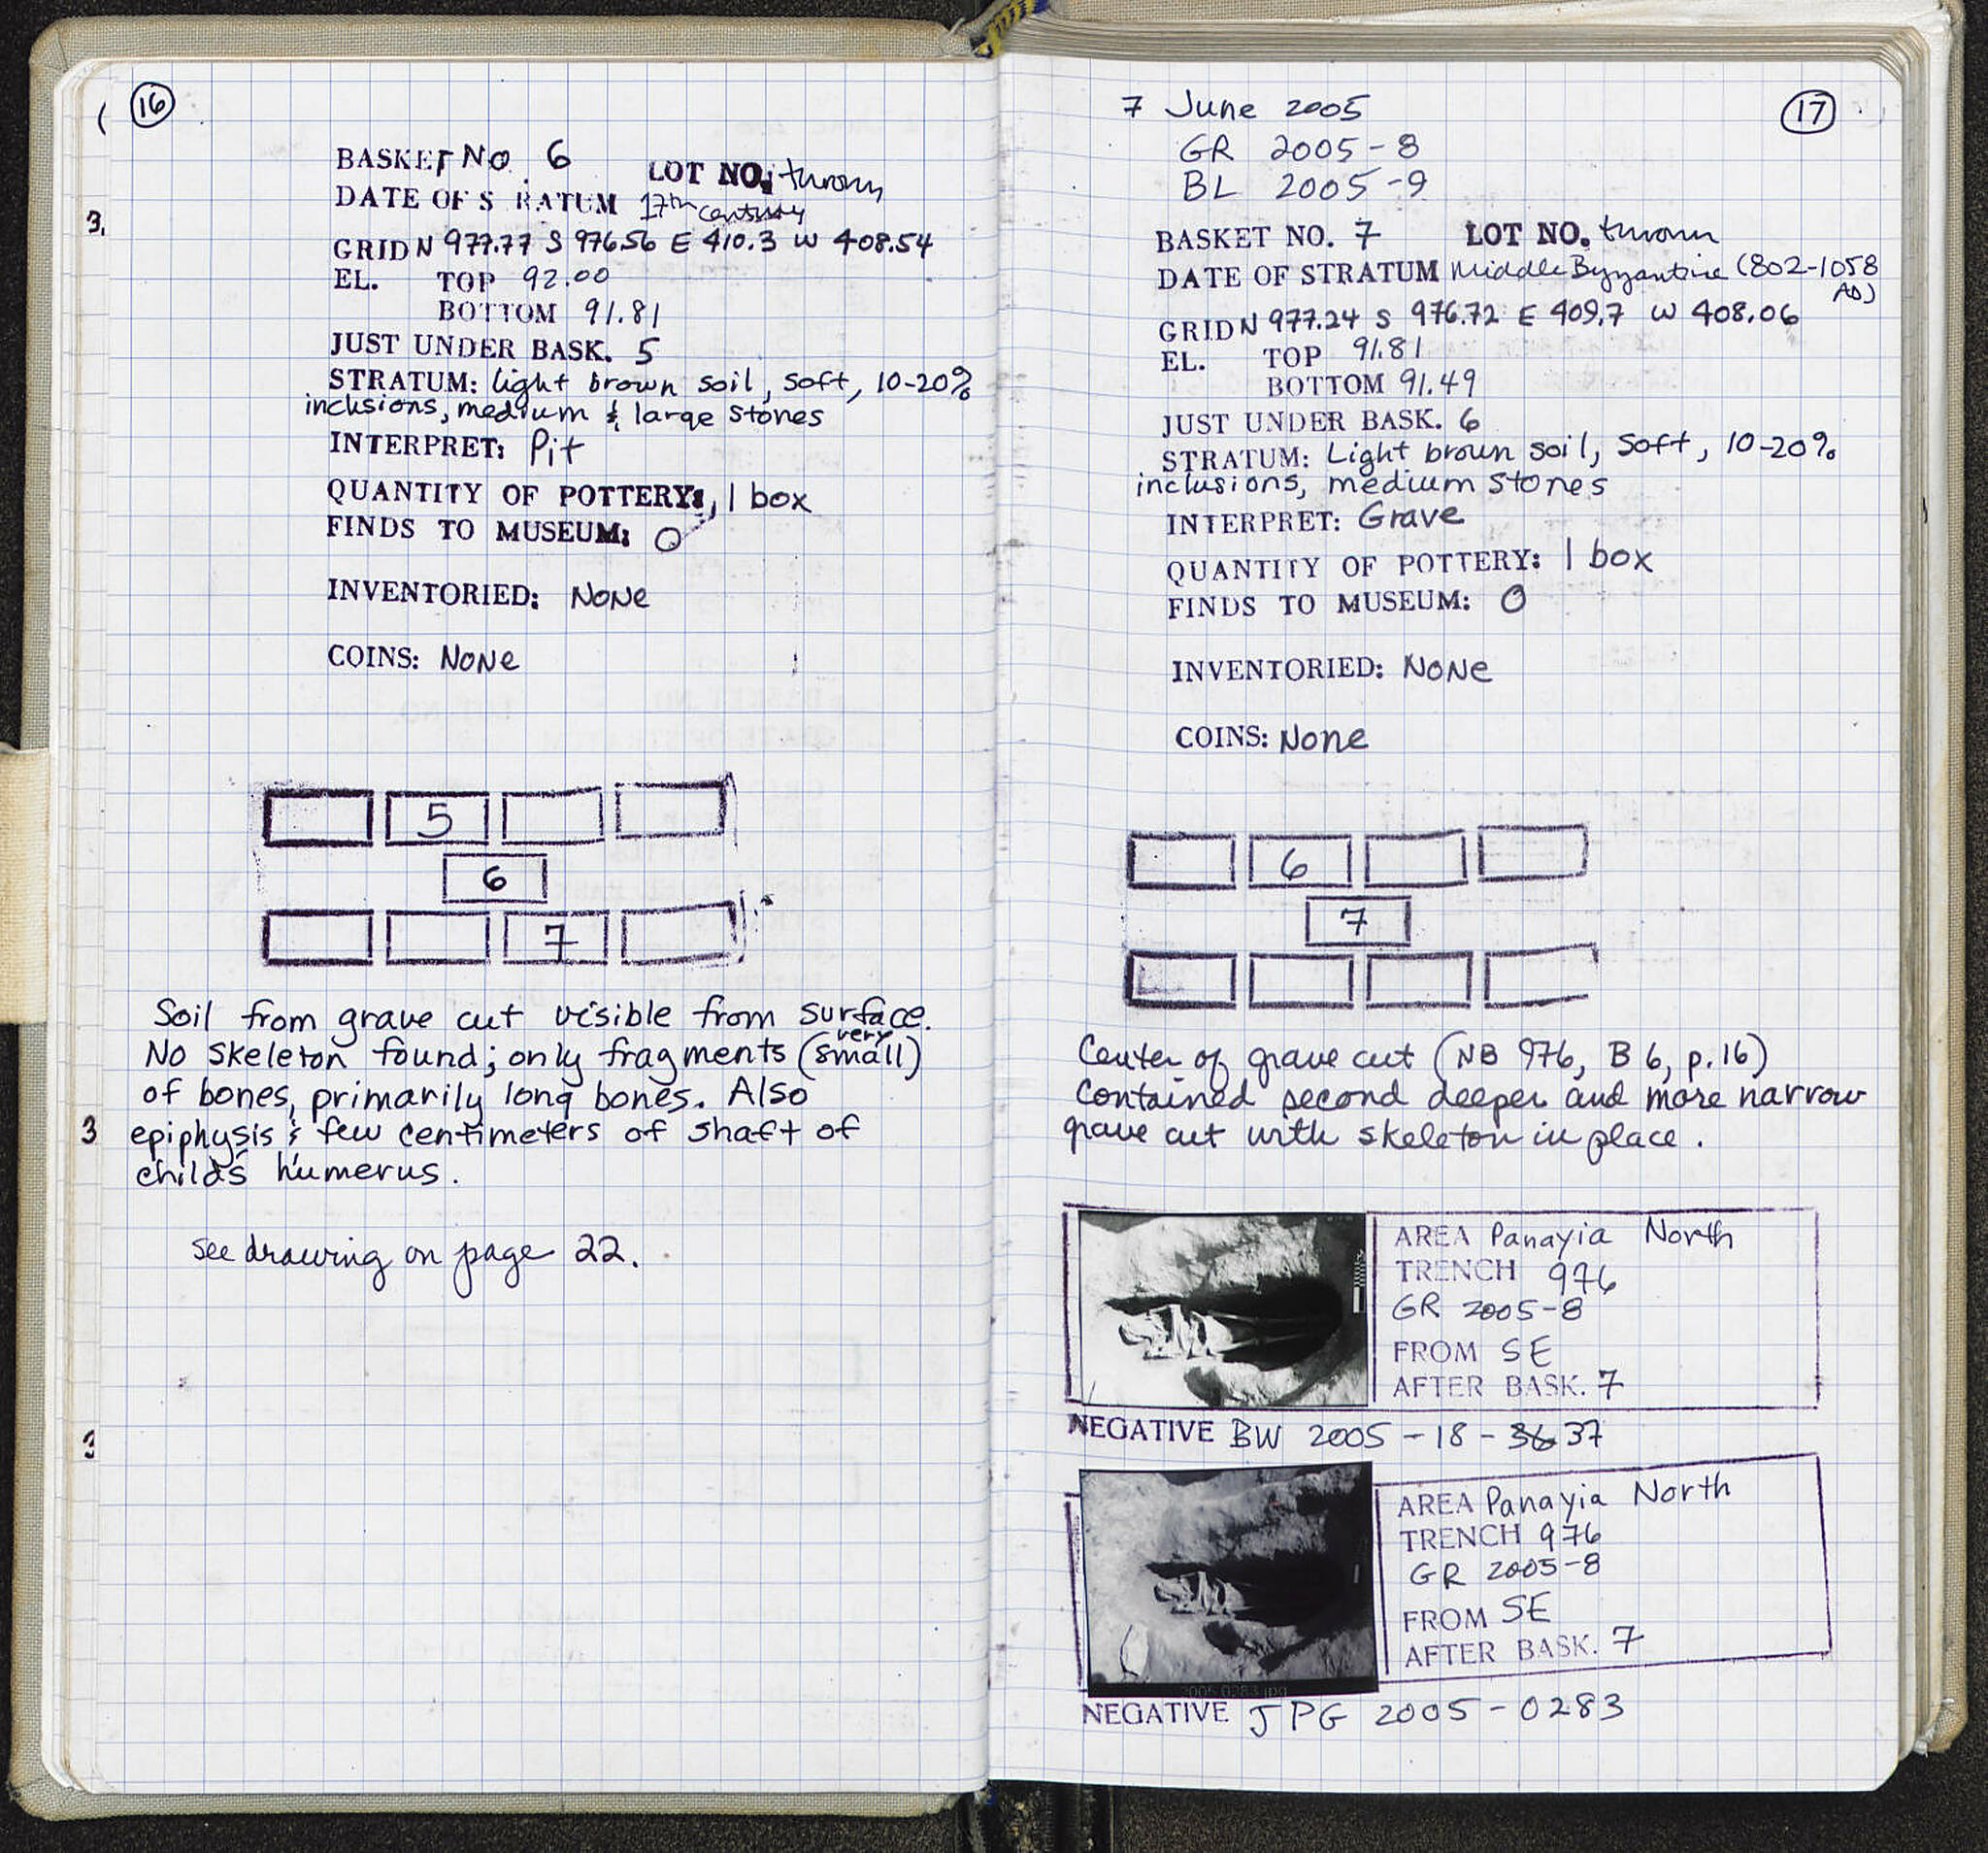 16
BASKET NO. 6 LOT NO. thrown
DATE OF S RATUM 17th century
GRID N 977.77 S 976.56 E 410.3 W 408.54
EL. TOP 92.00
BOTTOM 91.81
JUST UNDER BASK. 5
STRATUM: light brown soil, soft, 10-20%
inclusions, medium & large stones
INTERPRET: Pit
QUANTITY OF POTTERY: 1 box
FINDS TO MUSEUM: 0
INVENTORIED: None
COINS: None
5
6
7
Soil from grave cut visible from surface.
No skeleton found; only fragments (very small)
of bones, primarily long bones. Also
epiphysis & few centimeters of shaft of
child's humerus.
see drawing on page 22.
7 June 2005
17
GR 2005-8
BL 2005-9
BASKET NO. 7 LOT NO. thrown
DATE OF STRATUM Middle Byzantine (802-1058
AD)
GRID N 977.24 S 976.72 E 409.7 W 408.06
EL. TOP 91.81
BOTTOM 91.49
JUST UNDER BASK. 6
STRATUM: Light brown soil, soft, 10-20%
inclusions, medium stones
INTERPRET: Grave
QUANTITY OF POTTERY: 1 box
FINDS TO MUSEUM: 0
INVENTORIED: None
COINS: None
6
7
Center of grave cut (NB 976, B 6, p.16)
contained second deeper and more narrow
grave cut with skeleton in place.
AREA Panayia North
TRENCH 976
GR 2005-8
FROM SE
AFTER BASK. 7
NEGATIVE BW 2005-18-36 37
AREA Panayia North
TRENCH 976
GR 2005-8
FROM SE
AFTER BASK. 7
2005 0283.jpg
NEGATIVE JPG 2005-0283